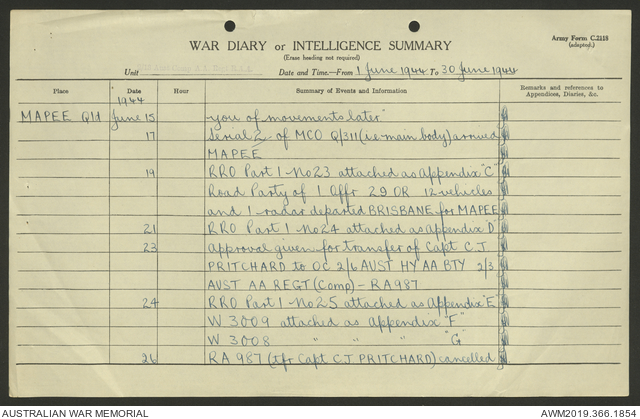 Army Form C.2118
(adapted.)
WAR DIARY or INTELLIGENCE SUMMARY
(Erase heading not required)
Unit
Date and Time.—From 1 June 1944 To 30 June 1944
Place Date Hour Summary of Events and Information Remarks and references to Appendices, Diaries, &c.
1944
MAPEE Qld June 15 you of movements later"
17 Serial 2 of MCO Q/311 (i.e. main body) arrived
MAPEE
19 RRO Part 1 - No 23 attached as Appendix "C"
Road Party of 1 Offr 29 OR 12 vehicles
and 1 radar departed BRISBANE for MAPEE
21 RRO Part 1 - No 24 attached as Appendix "D"
23 Approval given for transfer of Capt C.J.
PRITCHARD to OC 2/6 AUST HY AA BTY 2/3
AUST AA REGT (Comp) - RA987
24 RRO Part 1 - No 25 attached as Appendix "E"
W 3009 attached as Appendix "F"
W 3008 " " " "G"
26 RA 987 (tfr Capt C.J. PRITCHARD) cancelled
AUSTRALIAN WAR MEMORIAL AWM2019.366.1854